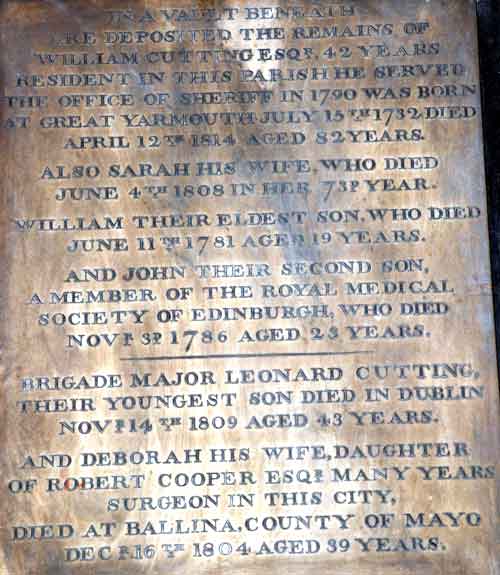 IN A VAULT BENEATH
ARE DEPOSITED THE REMAINS OF
WILLIAM CUTTING ESQR. 42 YEARS
RESIDENT IN THIS PARISH HE SERVED
THE OFFICE OF SHERIFF IN 1790 WAS BORN
AT GREAT YARMOUTH JULY 15TH 1732 DIED
APRIL 12TH 1814 AGED 82 YEARS.
ALSO SARAH HIS WIFE, WHO DIED
JUNE 4TH 1808 IN HER 73D YEAR.
WILLIAM THEIR ELDEST SON, WHO DIED
JUNE 11TH 1781 AGED 19 YEARS.
AND JOHN THEIR SECOND SON,
A MEMBER OF THE ROYAL MEDICAL
SOCIETY OF EDINBURGH, WHO DIED
NOVR. 3D. 1786 AGED 23 YEARS.
BRIGADE MAJOR LEONARD CUTTING,
THEIR YOUNGEST SON DIED IN DUBLIN
NOVR. 14TH 1809 AGED 43 YEARS.
AND DEBORAH HIS WIFE, DAUGHTER
OF ROBERT COOPER ESQR. MANY YEARS
SURGEON IN THIS CITY,
DIED AT BALLINA, COUNTY OF MAYO
DECR. 16TH 1804 AGED 39 YEARS.